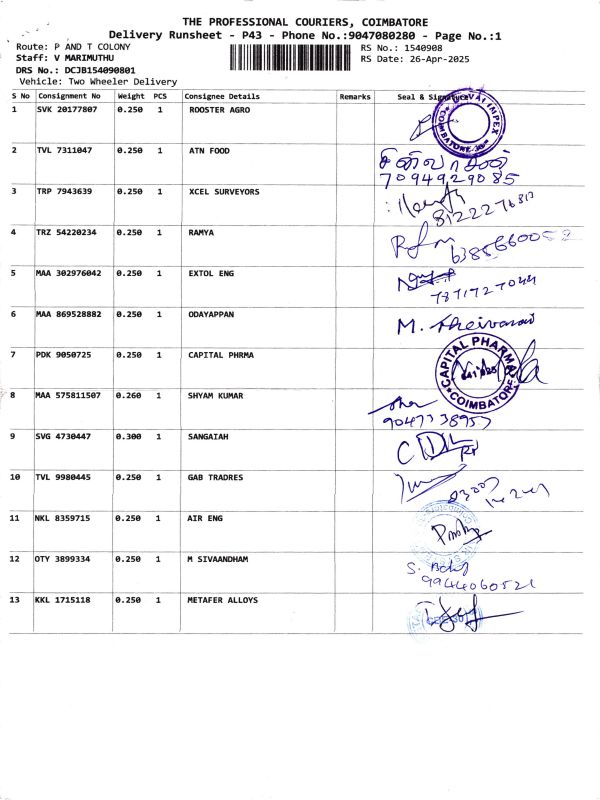 THE PROFESSIONAL COURIERS, COIMBATORE
Delivery Runsheet - P43 - Phone No.:9047080280 - Page No.:1
Route: P AND T COLONY
RS No.: 1540908
Staff: V MARIMUTHU
RS Date: 26-Apr-2025
DRS No.: DCJB154090801
Vehicle: Two Wheeler Delivery
S No Consignment No Weight PCS Consignee Details Remarks Seal & Signature
1 SVK 20177807 0.250 1 ROOSTER AGRO
IMPEX COIMBATORE
2 TVL 7311047 0.250 1 ATN FOOD
7094929085
3 TRP 7943639 0.250 1 XCEL SURVEYORS
4 TRZ 54220234 0.250 1 RAMYA
5 MAA 302976042 0.250 1 EXTOL ENG
6 MAA 869528882 0.250 1 ODAYAPPAN
M.
7 PDK 9050725 0.250 1 CAPITAL PHRMA
CAPITAL PHARMA COIMBATORE
8 MAA 575811507 0.260 1 SHYAM KUMAR
9 SVG 4730447 0.300 1 SANGAIAH
10 TVL 9980445 0.250 1 GAB TRADRES
11 NKL 8359715 0.250 1 AIR ENG
12 OTY 3899334 0.250 1 M SIVAANDHAM
9944060521
13 KKL 1715118 0.250 1 METAFER ALLOYS